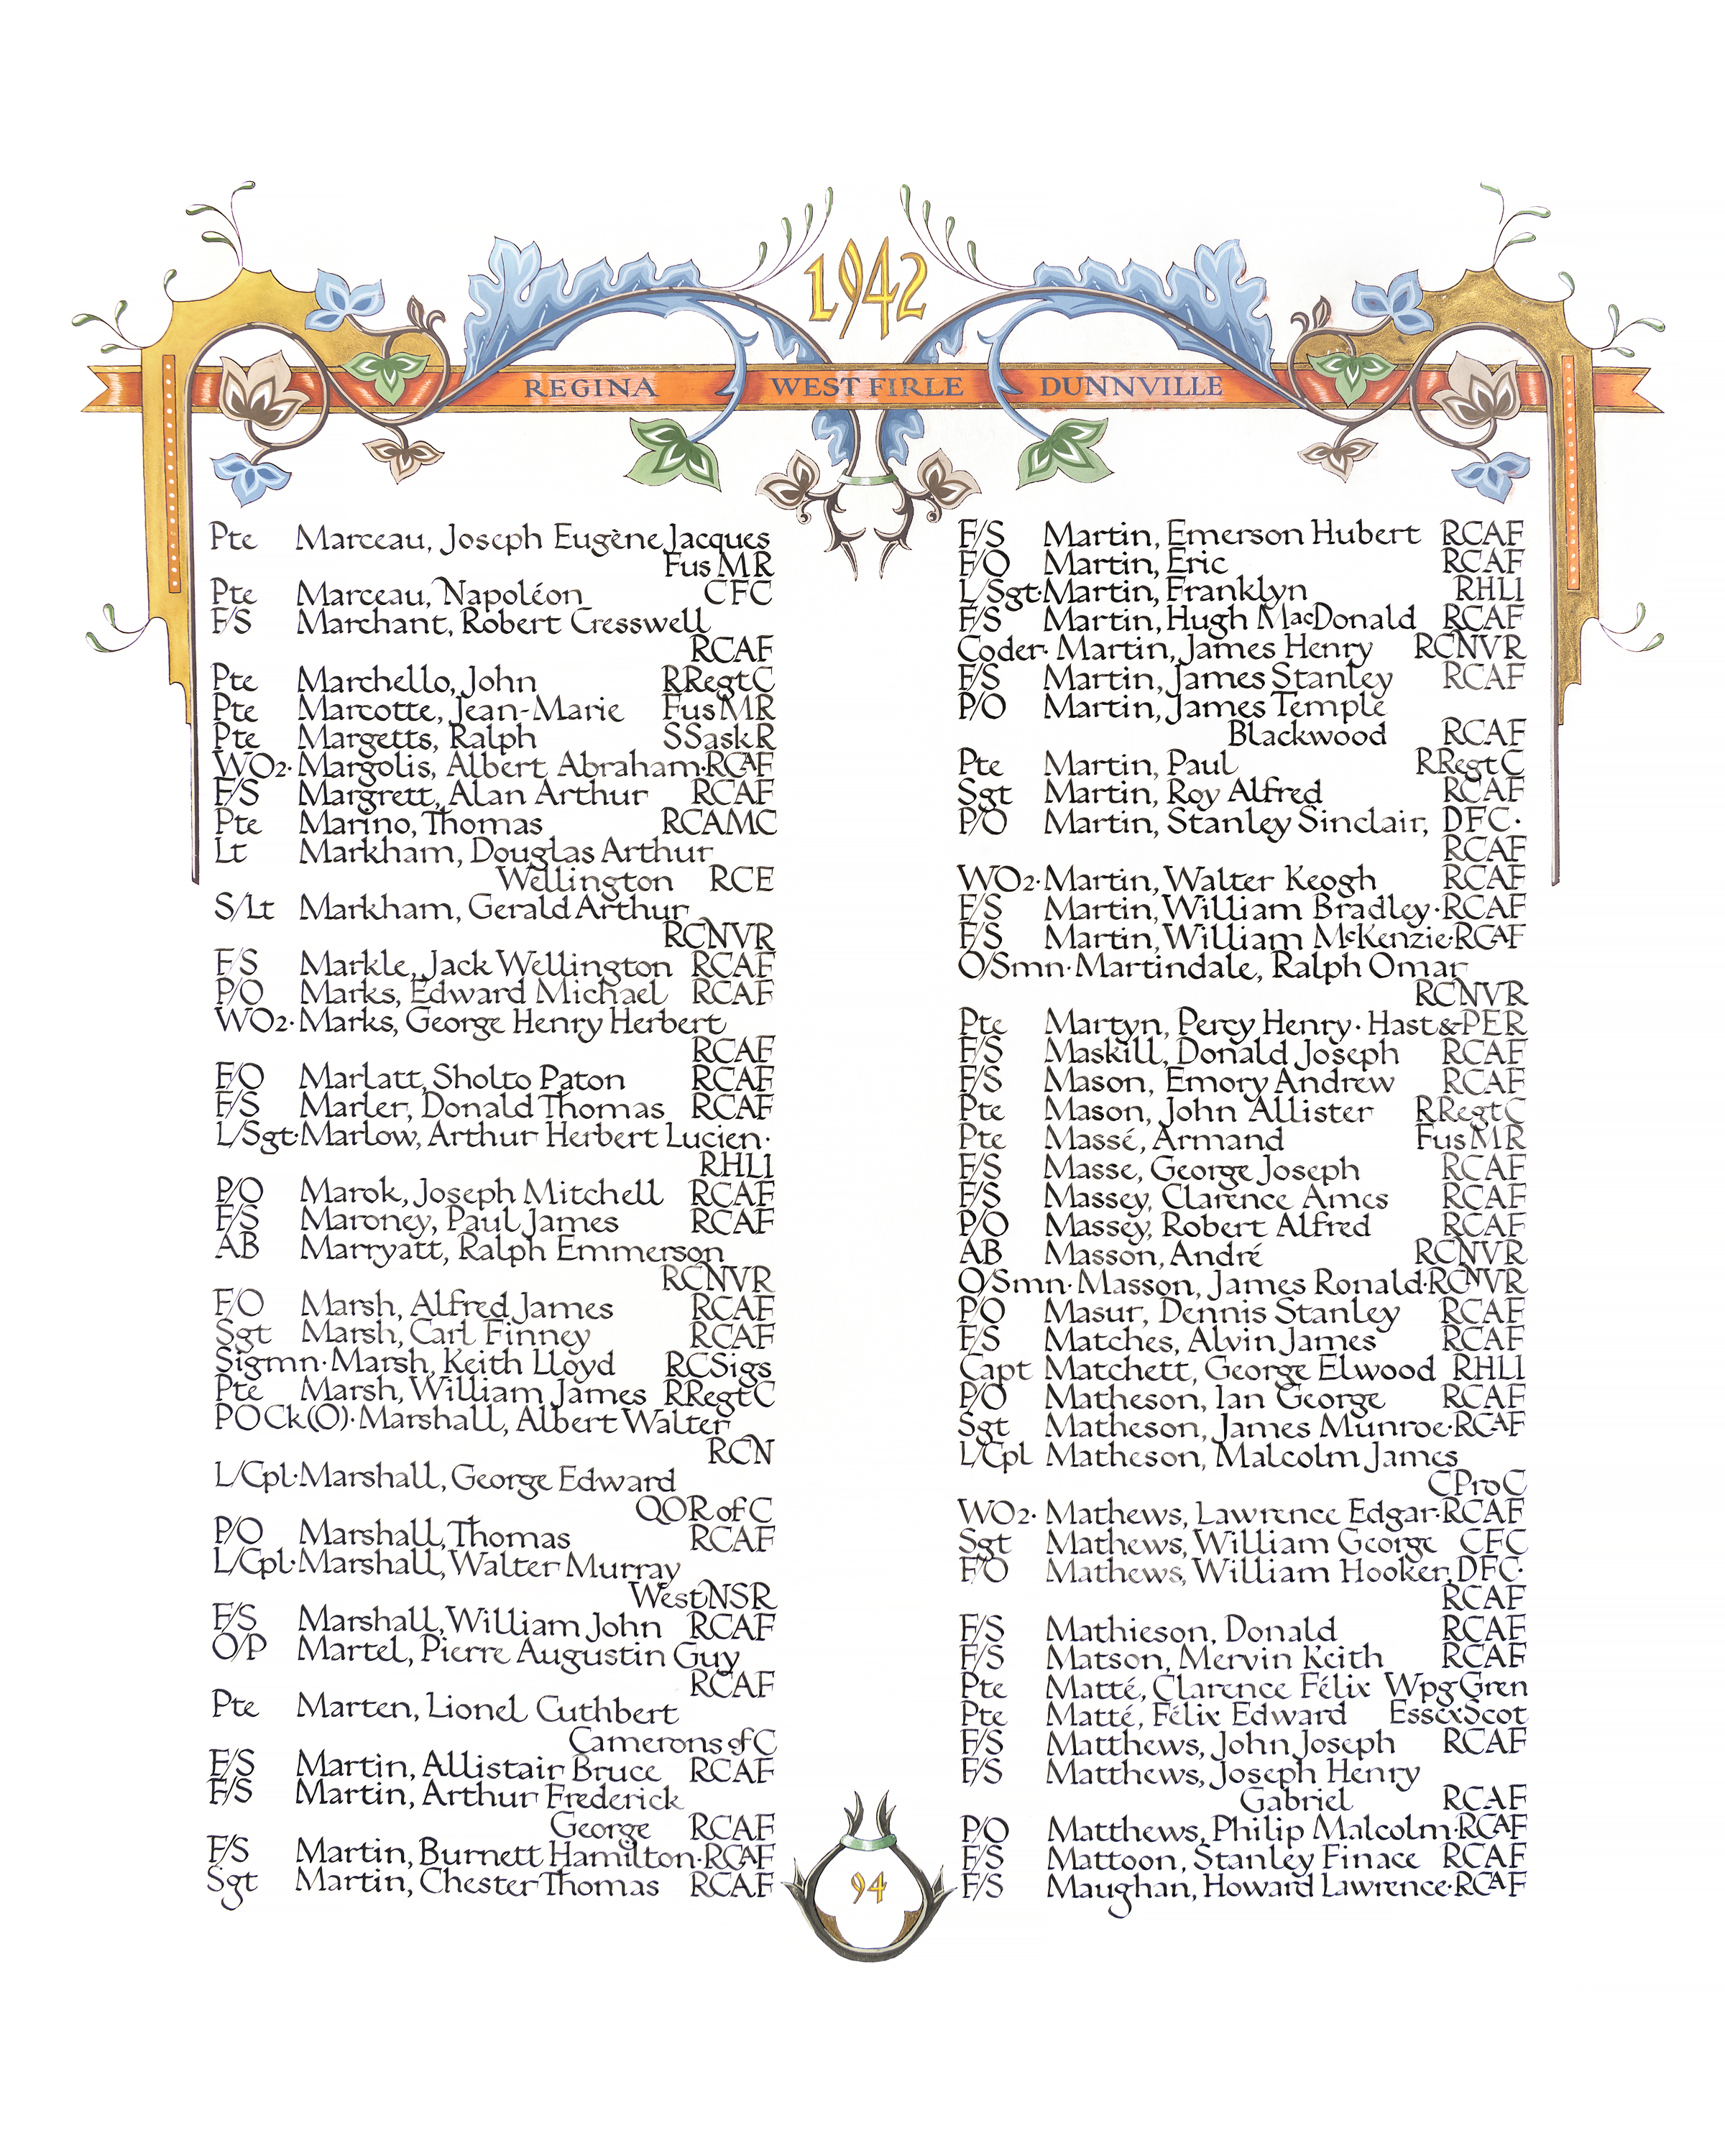 1942
REGINA WEST FIRLE DUNNVILLE
Pte Marceau, Joseph Eugène Jacques
Fus MR
Pte Marceau, Napoléon CFC
F/S Marchant, Robert Cresswell
RCAF
Pte Marchello, John RRegtC
Pte Marcotte, Jean-Marie FusMR
Pte Margetts, Ralph SSaskR
WO2· Margolis, Albert Abraham·RCAF
F/S Margrett, Alan Arthur RCAF
Pte Marino, Thomas RCAMC
Lt Markham, Douglas Arthur
Wellington RCE
S/Lt Markham, Gerald Arthur
RCNVR
F/S Markle, Jack Wellington RCAF
P/O Marks, Edward Michael RCAF
WO2· Marks, George Henry Herbert
RCAF
F/O Marlatt, Sholto Paton RCAF
F/S Marler, Donald Thomas RCAF
L/Sgt·Marlow, Arthur Herbert Lucien·
RHLI
P/O Marok, Joseph Mitchell RCAF
F/S Maroney, Paul James RCAF
AB Marryatt, Ralph Emmerson
RCNVR
F/O Marsh, Alfred James RCAF
Sgt Marsh, Carl Finney RCAF
Sigmn·Marsh, Keith Lloyd RCSigs
Pte Marsh, William James RRegtC
POCk(O)·Marshall, Albert Walter
RCN
L/Cpl·Marshall, George Edward
QOR of C
P/O Marshall, Thomas RCAF
L/Cpl·Marshall, Walter Murray
WestNSR
F/S Marshall, William John RCAF
O/P Martel, Pierre Augustin Guy
RCAF
Pte Marten, Lionel Cuthbert
Camerons of C
F/S Martin, Allistair Bruce RCAF
F/S Martin, Arthur Frederick
George RCAF
F/S Martin, Burnett Hamilton·RCAF
Sgt Martin, Chester Thomas RCAF
F/S Martin, Emerson Hubert RCAF
F/O Martin, Eric RCAF
L/Sgt·Martin, Franklyn RHLI
F/S Martin, Hugh MacDonald RCAF
Coder· Martin, James Henry RCNVR
F/S Martin, James Stanley RCAF
P/O Martin, James Temple
Blackwood RCAF
Pte Martin, Paul RRegtC
Sgt Martin, Roy Alfred RCAF
P/O Martin, Stanley Sinclair, DFC·
RCAF
WO2·Martin, Walter Keogh RCAF
F/S Martin, William Bradley·RCAF
F/S Martin, William McKenzie·RCAF
O/Smn·Martindale, Ralph Omar
RCNVR
Pte Martyn, Percy Henry·Hast&PER
F/S Maskill, Donald Joseph RCAF
F/S Mason, Emory Andrew RCAF
Pte Mason, John Allister RRegtC
Pte Massé, Armand FusMR
F/S Masse, George Joseph RCAF
F/S Massey, Clarence Ames RCAF
P/O Massey, Robert Alfred RCAF
AB Masson, André RCNVR
O/Smn·Masson, James Ronald·RCNVR
P/O Masur, Dennis Stanley RCAF
F/S Matches, Alvin James RCAF
Capt Matchett, George Elwood RHLI
P/O Matheson, Ian George RCAF
Sgt Matheson, James Munroe·RCAF
L/Cpl Matheson, Malcolm James
CProC
WO2· Mathews, Lawrence Edgar·RCAF
Sgt Mathews, William George CFC
F/O Mathews, William Hooker, DFC·
RCAF
F/S Mathieson, Donald RCAF
F/S Matson, Mervin Keith RCAF
Pte Matté, Clarence Félix WpgGren
Pte Matté, Félix Edward EssexScot
F/S Matthews, John Joseph RCAF
F/S Matthews, Joseph Henry
Gabriel RCAF
P/O Matthews, Philip Malcolm·RCAF
F/S Mattoon, Stanley Finace RCAF
F/S Maughan, Howard Lawrence·RCAF
94